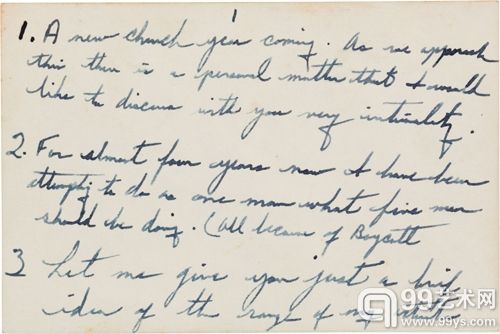 1
1. A new church year coming. As we approach
this there is a personal matter that I would
like to discuss with you very intimately.
2. For almost four years now I have been
attempting to do as one man what five men
should be doing. (All because of Boycott
3 Let me give you just a brief
idea of the range of my
99艺术网
www.99ys.com